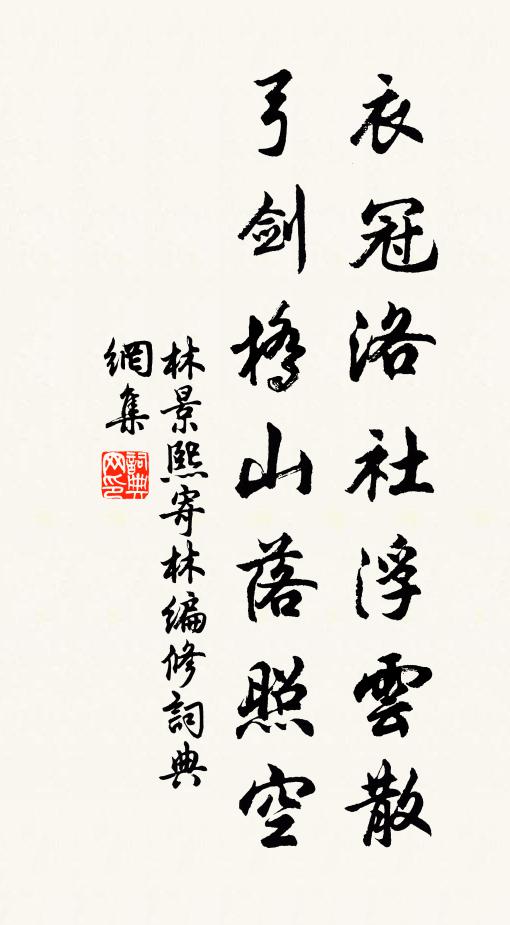 衣冠洛社浮雲散
弓劍橋山落照空
林景熙寄林編修詞典
網集
詞典網印